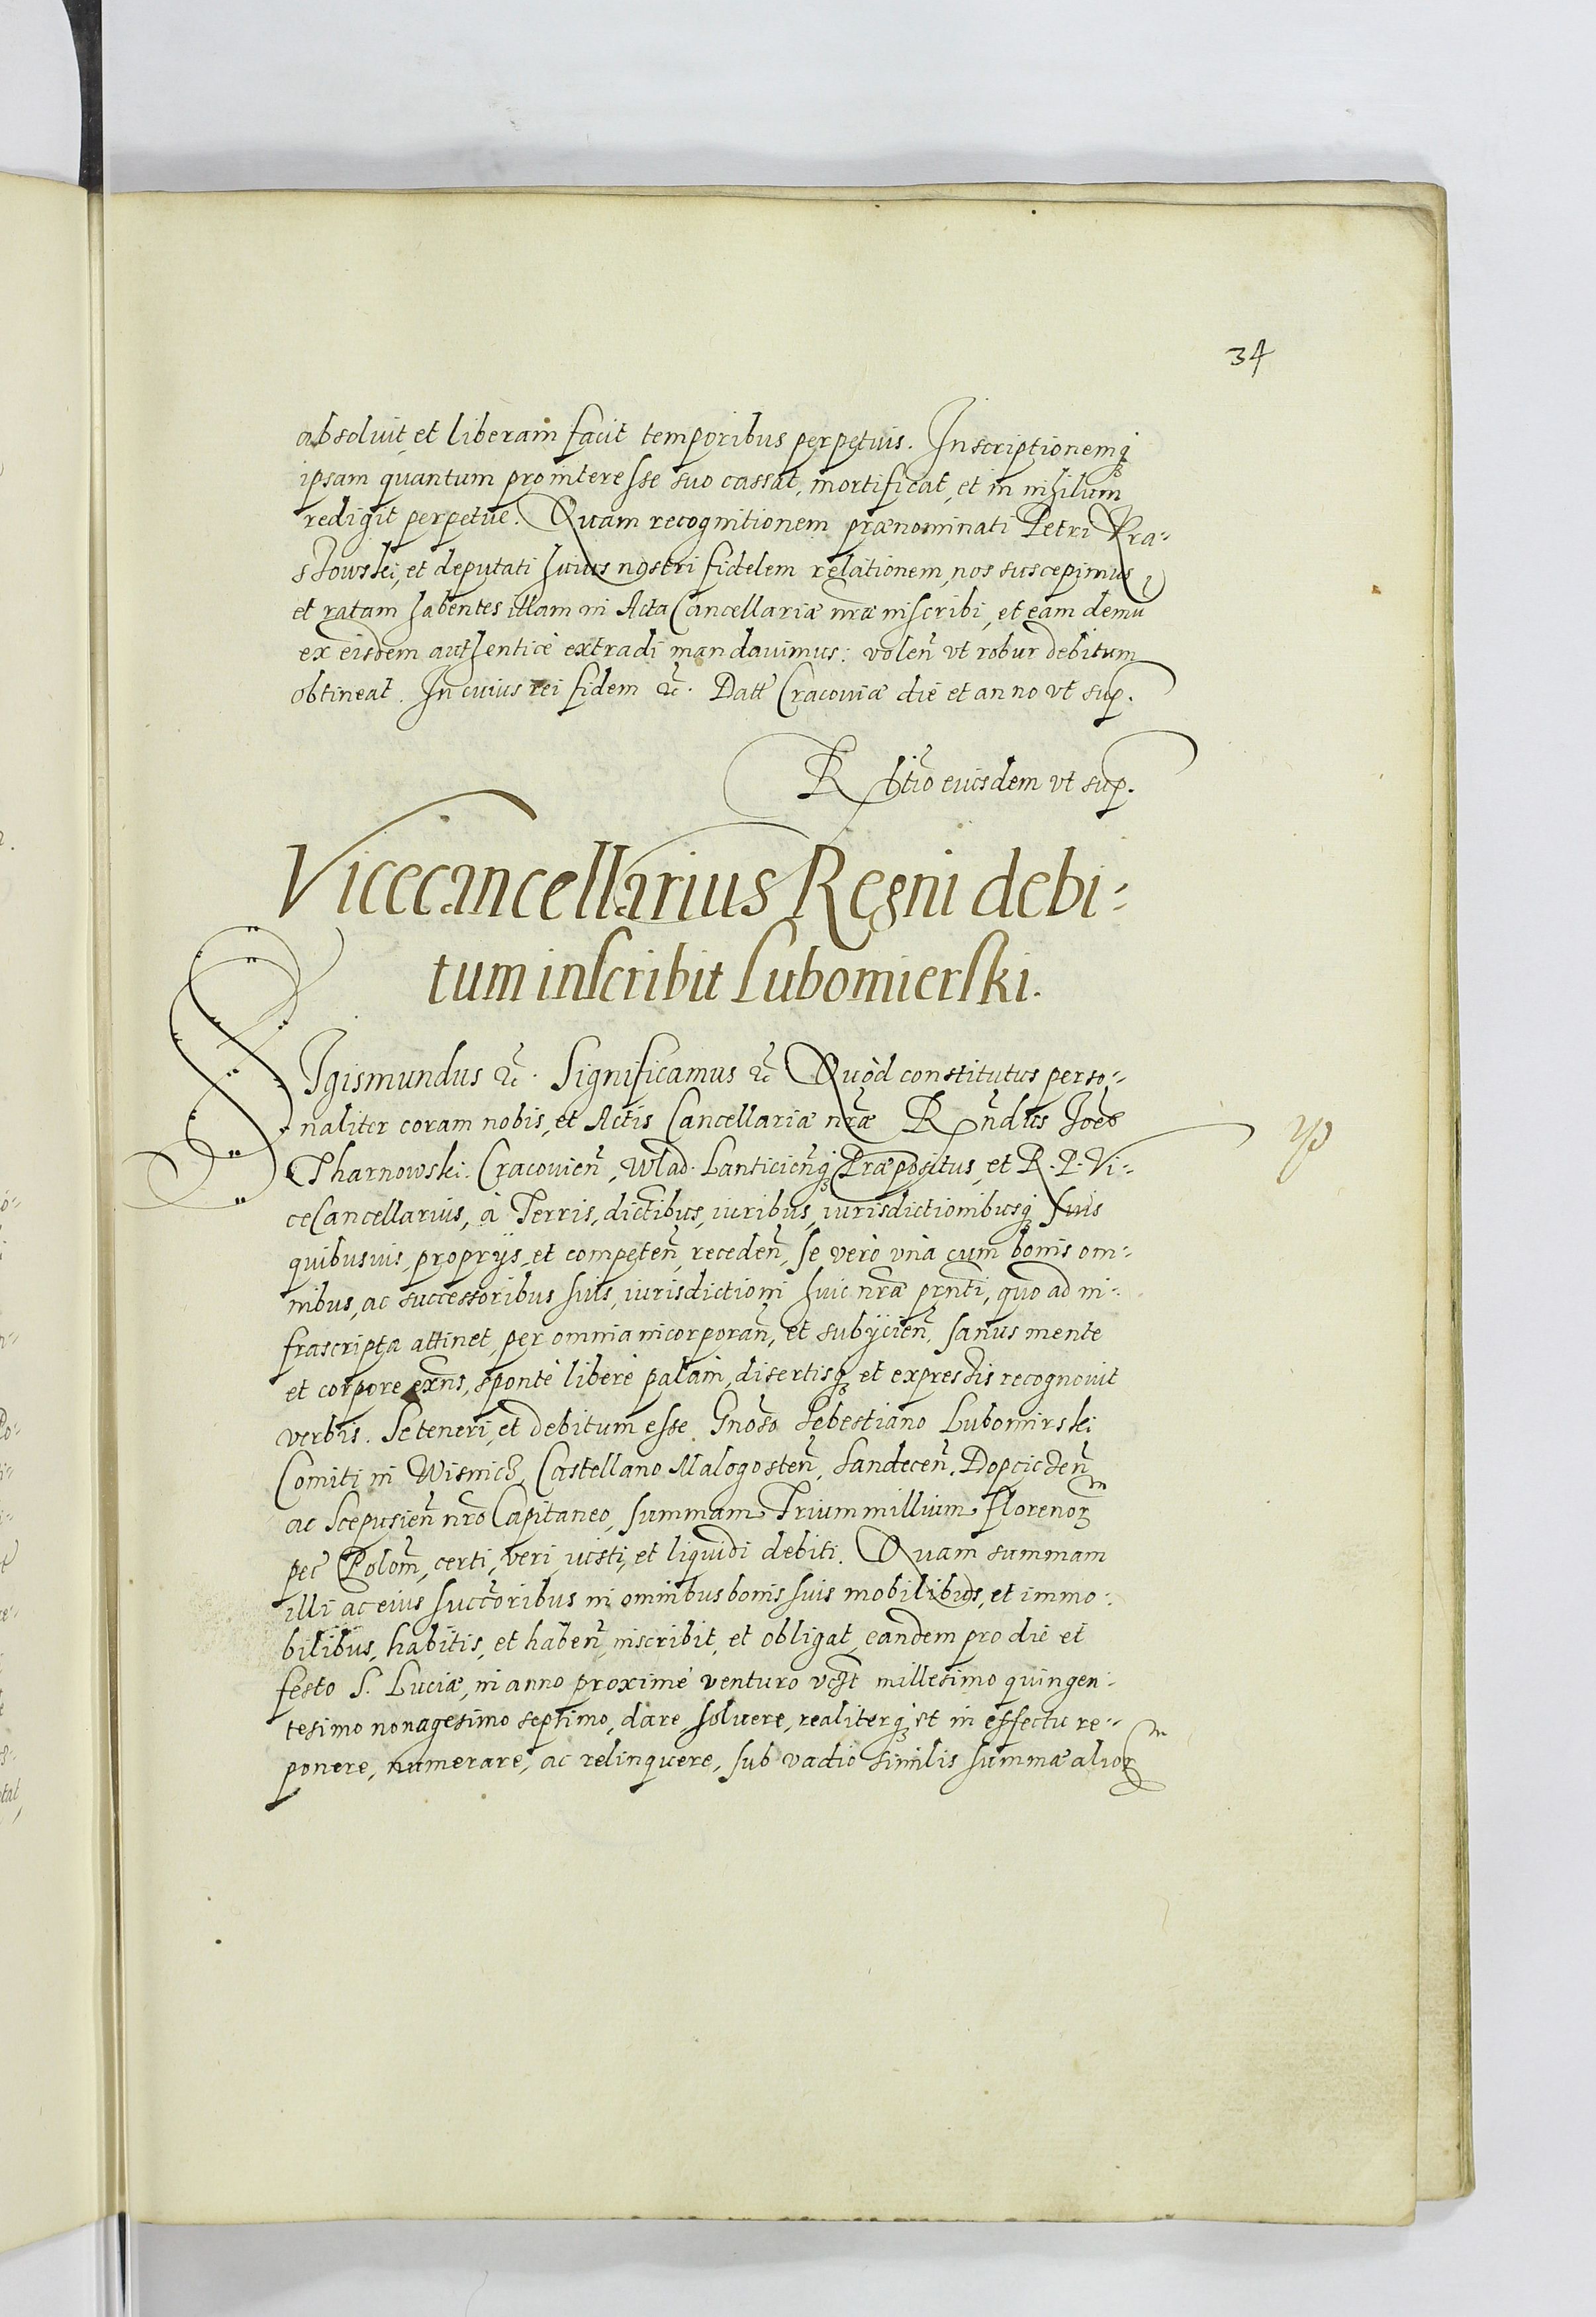 34
absoluit, et liberam facit temporibus perpetuis. Inscriptionemq́ꝫ
ipsam quantum pro interesse suo cassat, mortificat, et in nihilum
redigit perpetue. Quam recognitionem prænominati Petri Kra⸗
ssowski, et deputati huius nostri fidelem relationem, nos suscepimus,
et ratam habentes illam in Acta Cancellariæ nr̃æ inscribi, et eam demũ
ex eisdem authenticè extradi mandauimus: volen̄ vt robur debitum
obtineat. In cuius rei fidem ꝛc̃. Datt Cracouiæ die et anno vt sup.
R btĩo eiusdem vt sup.
Vicecancellarius Regni debi⸗
tum inscribit Lubomierski.
SIgismundus ꝛc̃. Significamus ꝛc̃ Quòd constitutus perso⸗
naliter coram nobis, et Actis Cancellariæ nr̃æ Rn̄dus Ioẽs
Tharnowski. Cracouien̄, Wlad. Lanticien̄q́ꝫ Præpositus, et R. P. Vi⸗
ceCancellarius, à Terris, dictibus, iuribus, iurisdictionibusq́ꝫ suis
quibusuis, proprijs, et competen̄, receden̄, se verò vnà cum bonis om⸗
nibus, ac successoribus suis, iurisdictioni huic nr̃æ prn̄ti, quo ad in⸗
frascripta attinet, per omnia incorporan̄, et subijcien̄, sanus mente
et corpore exñs, spontè liberè palam, disertisq́ꝫ et expressis recognouit
verbis. Se teneri, et debitum esse Gnõso Sebestiano Lubomirski
Comiti in Wisnicz, Castellano Malogosten̄, Sandecen̄, Dopcicien̄
ac Scepusien̄ nr̃o Capitaneo, summam Trium millium Florenoꝝ
pec̃ Polon̄, certi, veri, iusti, et liquidi debiti. Quam summam
illi ac eius succ̃oribus in omnibus bonis suis mobilibus, et immo⸗
bilibus, habitis, et haben̄, inscribit, et obligat, eandem pro die et
festo S. Luciæ, in anno proximè venturo vc̃zt millesimo quingen⸗
tesimo nonagesimo septimo, dare, soluere, realiterq́ꝫ et in effectu re⸗
ponere, numerare, ac relinquere, sub vadio similis summæ alioꝝ